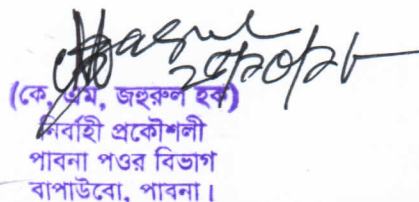 (কে, এম, জহুরুল হক)
নির্বাহী প্রকৌশলী
পাবনা পওর বিভাগ
বাপাউবো, পাবনা।